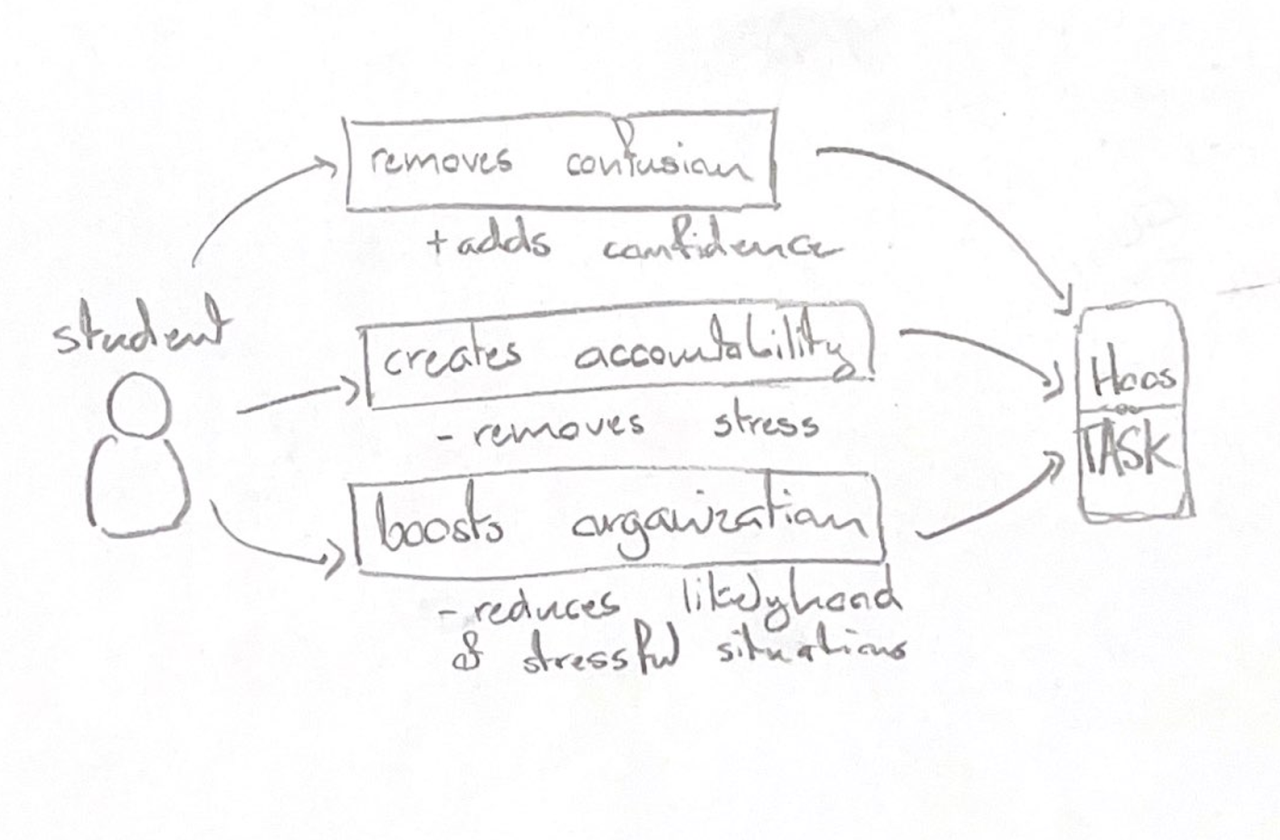 removes confusion
+ adds confidence
student
creates accountability
- removes stress
Haas
TASK
boosts organization
- reduces likelyhood
of stressful situations